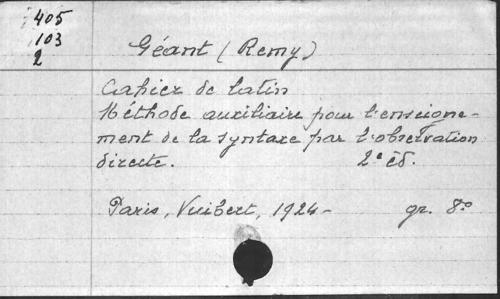 405
103
2
Géant (Remy)
Cahier de latin
Méthode auxiliaire pour l'enseigne-
ment de la syntaxe par l'observation
directe. 2e éd.
Paris, Vuibert, 1924- gr. 8°